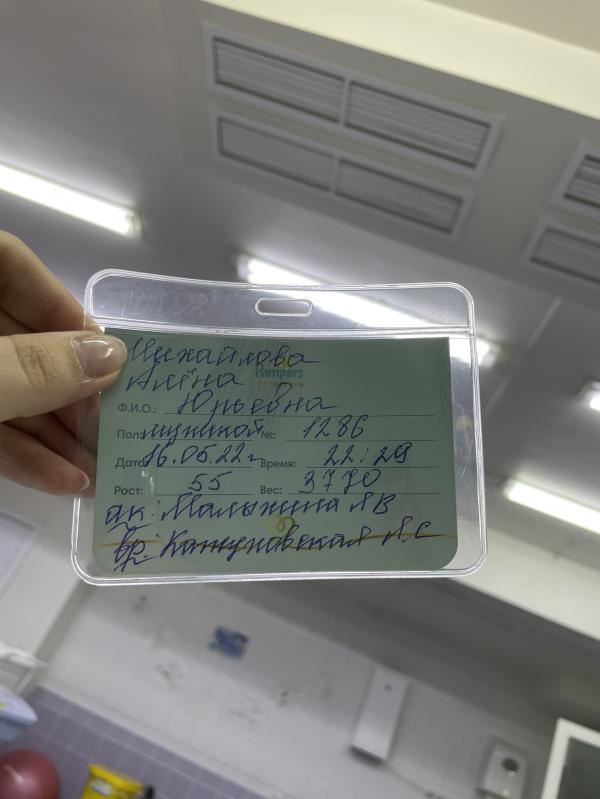 Михайлова
Алёна
Pampers
Ф.И.О.: Юрьевна
Пол: мужской №: 1286
Дата 16.05.22 г Время: 22:29
Рост: 55 Вес: 3770
ак: Малыхина Л В
вр: Кожуховская Л.С